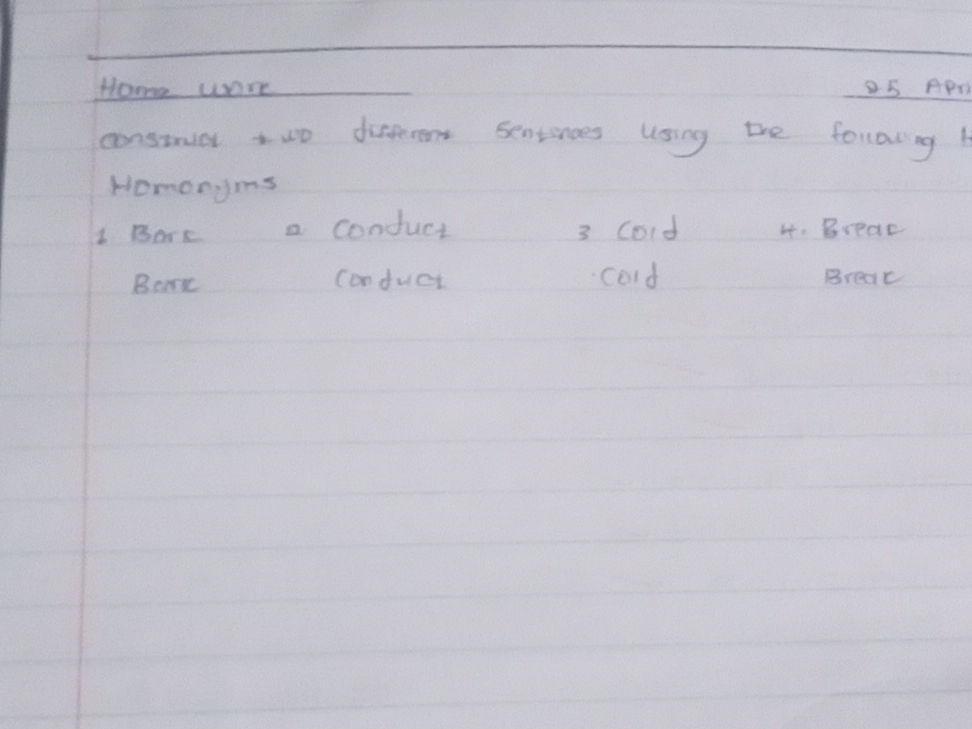 Home work 25 Apri
construct two different sentences using the following H
Homonyms
1 Bark 2 Conduct 3 Cold 4. Break
Bark Conduct Cold Break